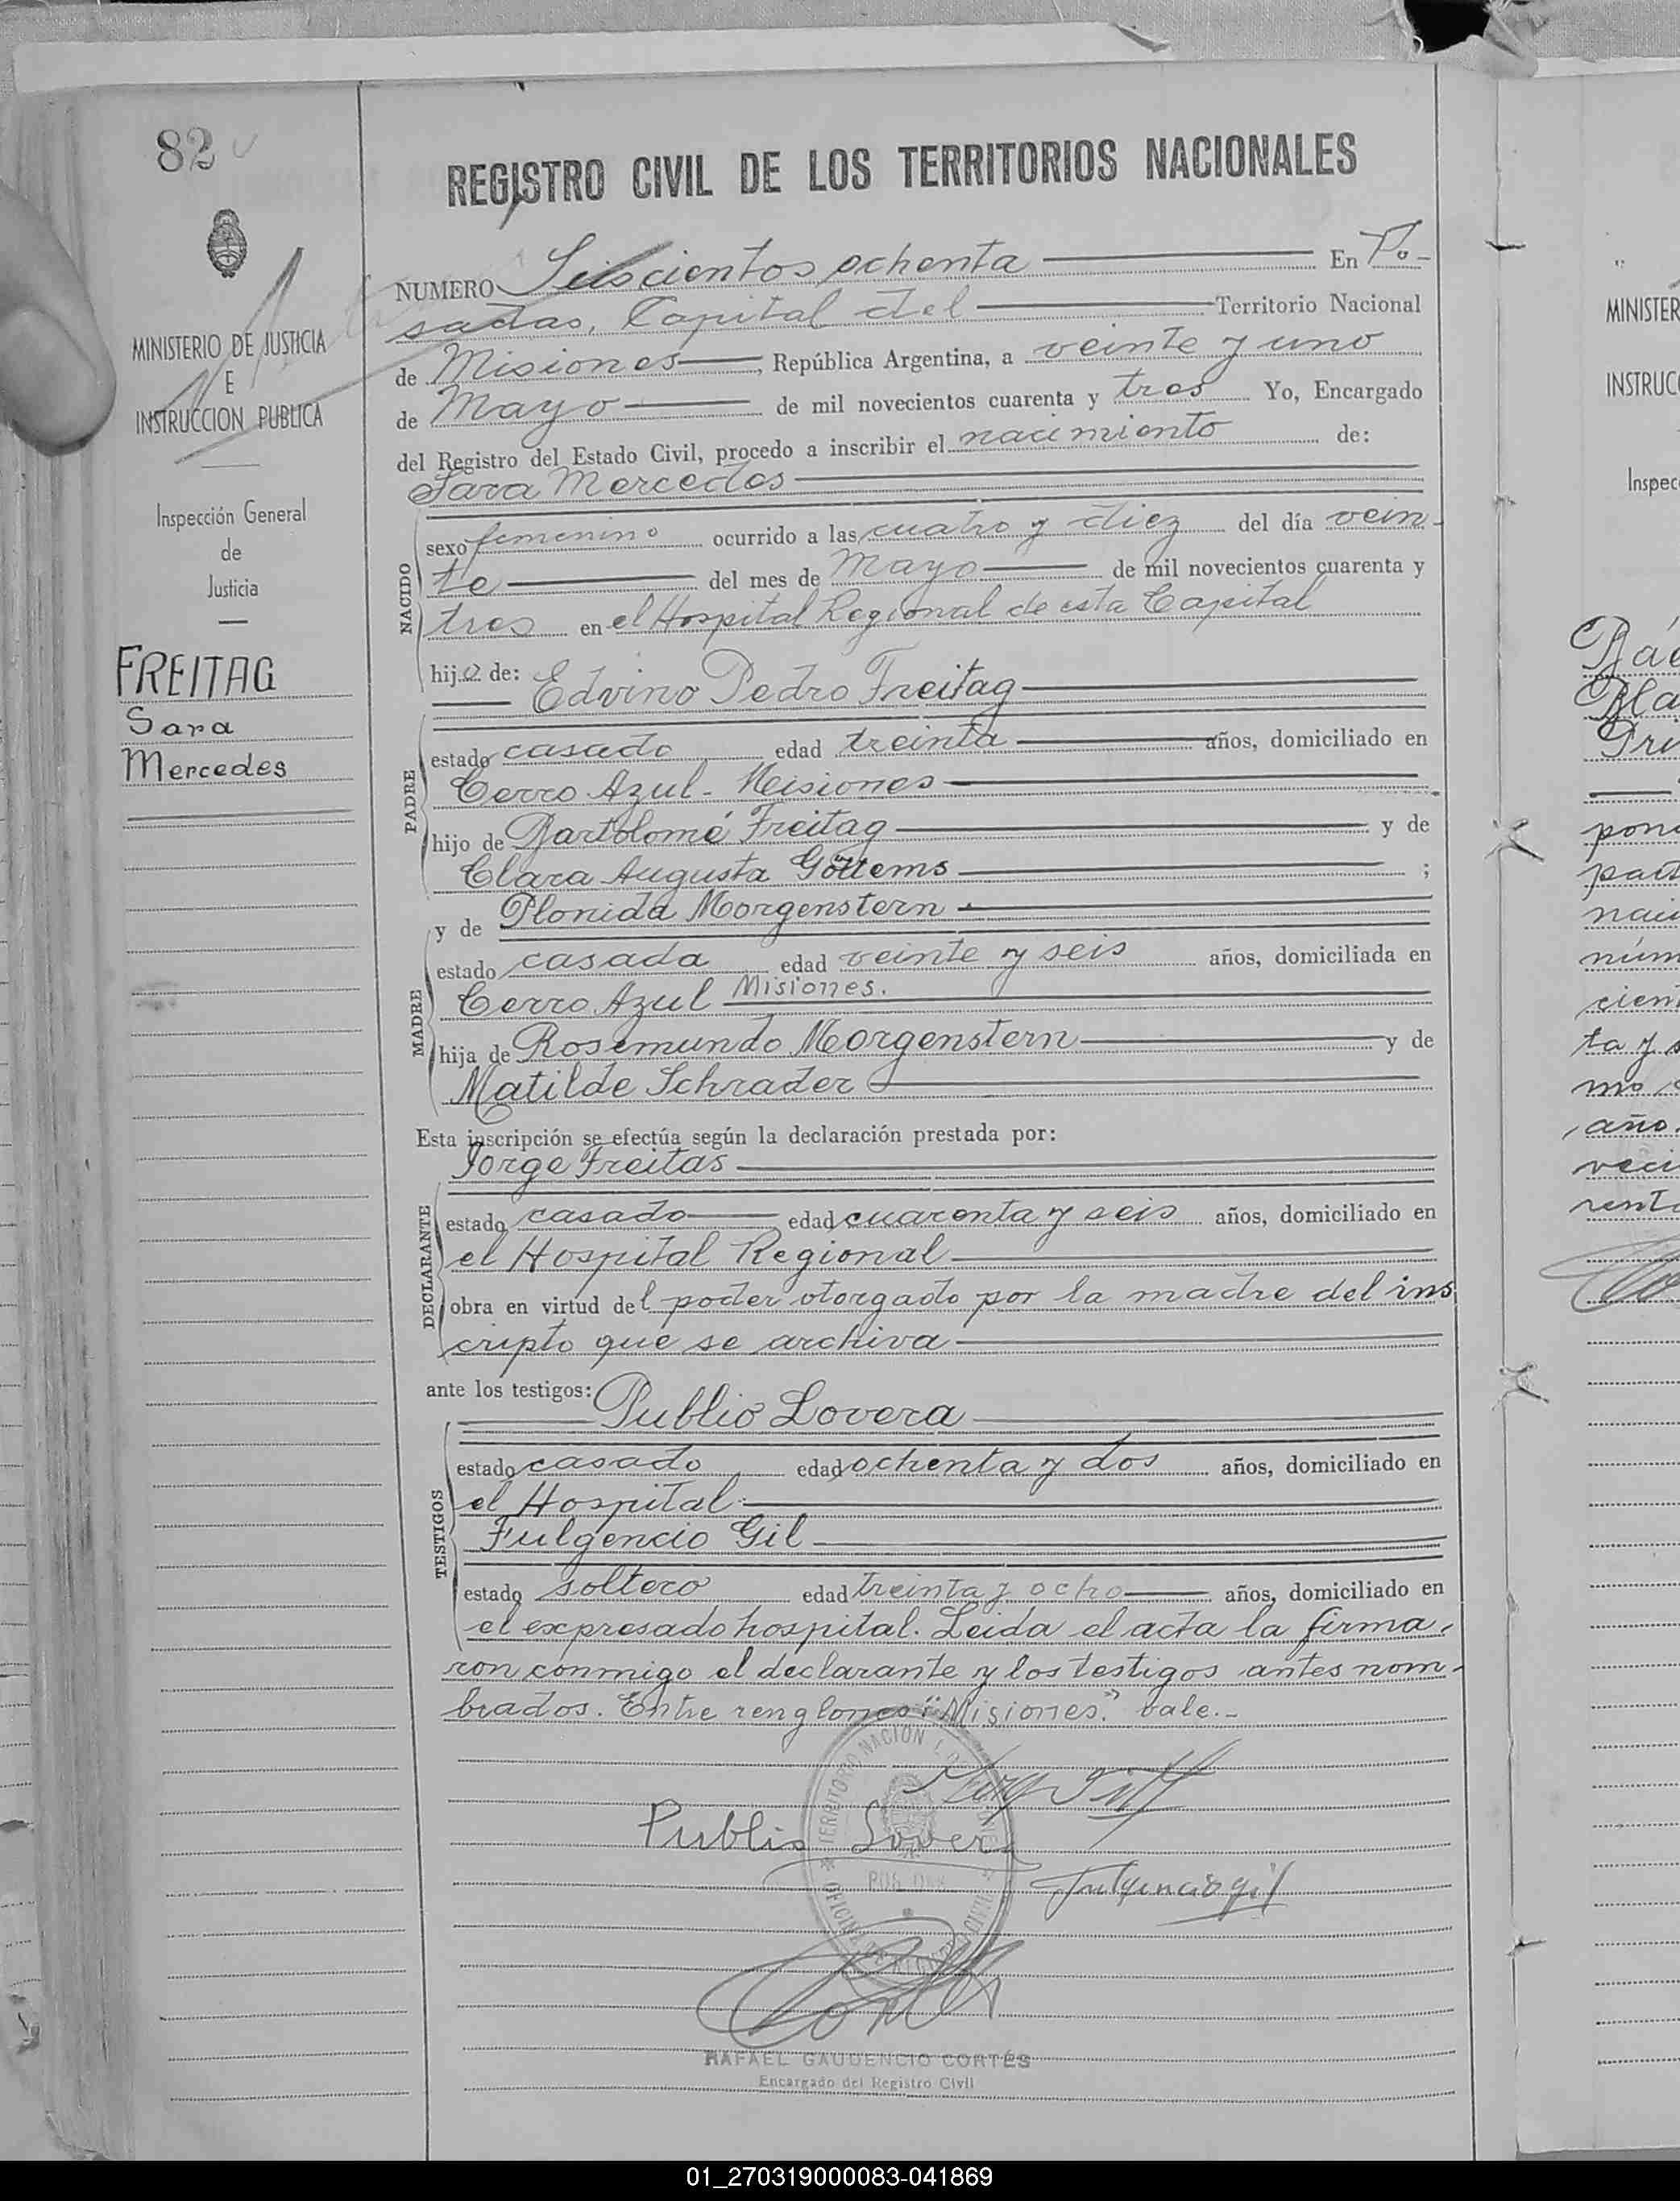 82
REGISTRO CIVIL DE LOS TERRITORIOS NACIONALES
MINISTERIO DE JUSTICIA
E
INSTRUCCION PUBLICA
Inspección General
de
Justicia
FREITAG
Sara
Mercedes
NUMERO Seiscientos ochenta En Po-
sadas, Capital del Territorio Nacional
de Misiones, República Argentina, a veinte y uno
de Mayo de mil novecientos cuarenta y tres Yo, Encargado
del Registro del Estado Civil, procedo a inscribir el nacimiento de:
Sara Mercedes
NACIDO
sexo femenino ocurrido a las cuatro y diez del día vein-
te del mes de Mayo de mil novecientos cuarenta y
tres en el Hospital Regional de esta Capital
hija de: Edvino Pedro Freitag
PADRE
estado casado edad treinta años, domiciliado en
Cerro Azul - Misiones
hijo de Bartolomé Freitag y de
Clara Augusta Göttems ;
y de Plonida Morgenstern
MADRE
estado casada edad veinte y seis años, domiciliada en
Cerro Azul Misiones.
hija de Rosemundo Morgenstern y de
Matilde Schrader
Esta inscripción se efectúa según la declaración prestada por:
Jorge Freitas
DECLARANTE
estado casado edad cuarenta y seis años, domiciliado en
el Hospital Regional
obra en virtud del poder otorgado por la madre del ins
cripto que se archiva
ante los testigos: Publio Lovera
TESTIGOS
estado casado edad ochenta y dos años, domiciliado en
el Hospital
Fulgencio Gil
estado soltero edad treinta y ocho años, domiciliado en
el expresado hospital. Leida el acta la firma-
ron conmigo el declarante y los testigos antes nom-
brados. Entre renglones "Misiones" vale.-
Publio Lovera
Fulgencio gil
RAFAEL GAUDENCIO CORTÉS
Encargado del Registro Civil
01_270319000083-041869